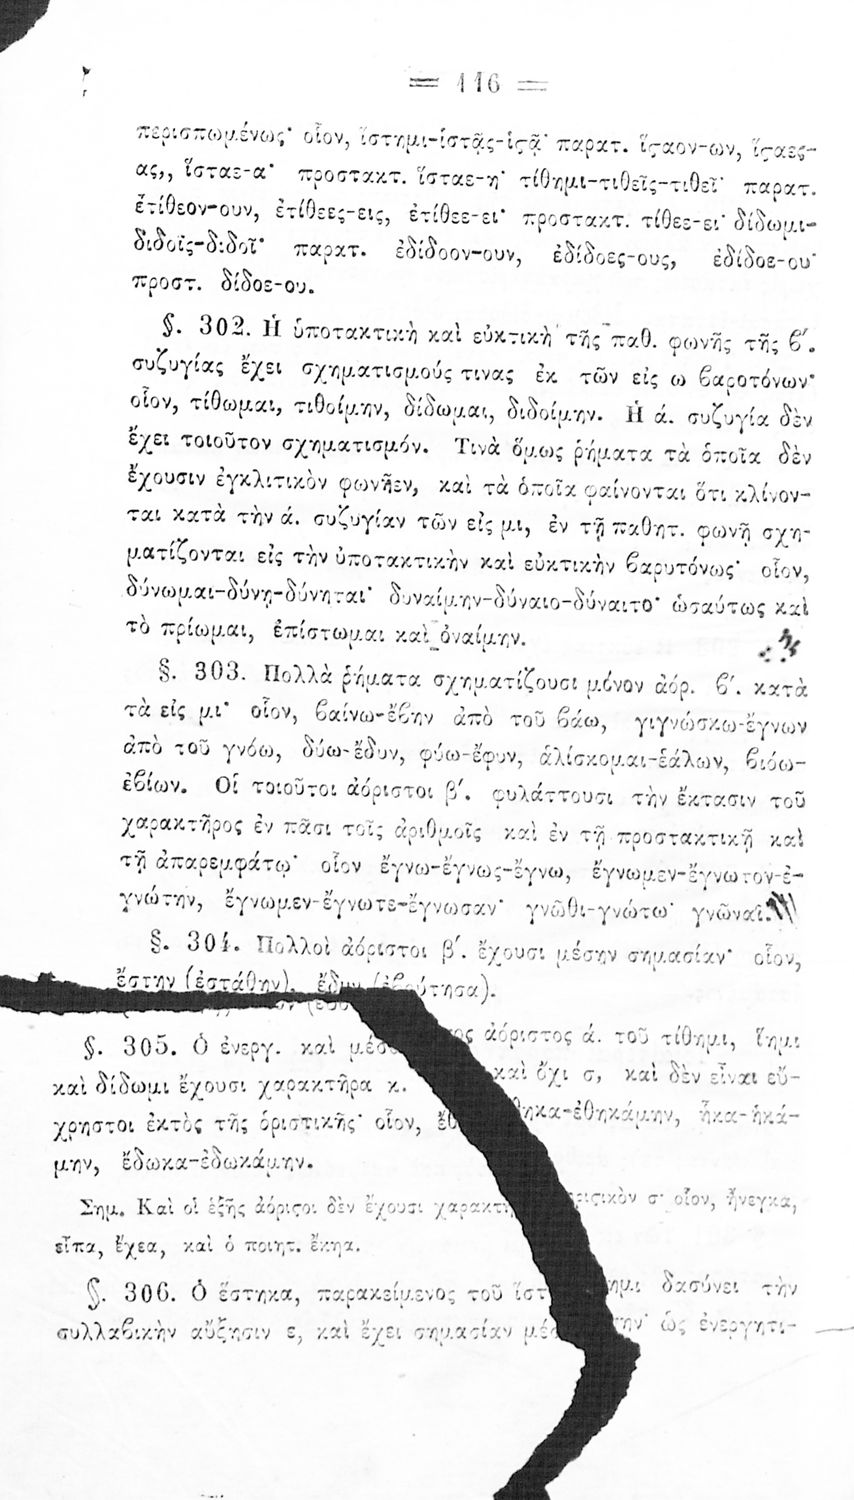 = 116 =
περισπωμένως· οἷον, ἵστημι-ἱστᾷς-ἱϛᾷ· παρατ. ἵϛαον-ων, ἵϛαες-
ας,, ἵσταε-α· προστακτ. ἵσταε-η· τίθημι-τιθεῖς-τιθεῖ· παρατ.
ἐτίθεον-ουν, ἐτίθεες-εις, ἐτίθεε-ει· προστακτ. τίθεε-ει· δίδωμι-
διδοῖς-διδοῖ· παρατ. ἐδίδοον-ουν, ἐδίδοες-ους, ἐδίδοε-ου·
προστ. δίδοε-ου.
§. 302. Ἡ ὑποτακτικὴ καὶ εὐκτικὴ τῆς παθ. φωνῆς τῆς ϐ´.
συζυγίας ἔχει σχηματισμούς τινας ἐκ τῶν εἰς ω ϐαροτόνων·
οἷον, τίθωμαι, τιθοίμην, δίδωμαι, διδοίμην. Ἡ ά. συζυγία δὲν
ἔχει τοιοῦτον σχηματισμόν. Τινὰ ὅμως ῥήματα τὰ ὁποῖα δὲν
ἔχουσιν ἐγκλιτικὸν φωνῆεν, καὶ τὰ ὁποῖα φαίνονται ὅτι κλίνον-
ται κατὰ τὴν ά. συζυγίαν τῶν εἰς μι, ἐν τῇ παθητ. φωνῇ σχη-
ματίζονται εἰς τὴν ὑποτακτικὴν καὶ εὐκτικὴν ϐαρυτόνως· οἷον,
δύνωμαι-δύνῃ-δύνηται· δυναίμην-δύναιο-δύναιτο· ὡσαύτως καὶ
τὸ πρίωμαι, ἐπίστωμαι καὶ ὀναίμην.
§. 303. Πολλὰ ῥήματα σχηματίζουσι μόνον ἀόρ. ϐ´. κατὰ
τὰ εἰς μι· οἷον, ϐαίνω-ἔϐην ἀπὸ τοῦ ϐάω, γιγνώσκω-ἔγνων
ἀπὸ τοῦ γνόω, δύω-ἔδυν, φύω-ἔφυν, ἁλίσκομαι-ἑάλων, ϐιόω-
ἐϐίων. Οἱ τοιοῦτοι ἀόριστοι β´. φυλάττουσι τὴν ἔκτασιν τοῦ
χαρακτῆρος ἐν πᾶσι τοῖς ἀριθμοῖς καὶ ἐν τῇ προστακτικῇ καὶ
τῇ ἀπαρεμφάτῳ· οἷον ἔγνω-ἔγνως-ἔγνω, ἔγνωμεν-ἔγνωτον-ἐ-
γνώτην, ἔγνωμεν-ἔγνωτε-ἔγνωσαν· γνῶθι-γνώτω· γνῶναι.
§. 304. Πολλοὶ ἀόριστοι β´. ἔχουσι μέσην σημασίαν· οἷον,
ἔστην (ἐστάθην). ἔδυν (ἐϐούτησα).
§. 305. Ὁ ἐνεργ. καὶ ἀόριστος ά. τοῦ τίθημι, ἵημι
καὶ δίδωμι ἔχουσι χαρακτῆρα κ. καὶ ὄχι σ, καὶ δὲν εἶναι εὔ-
χρηστοι ἐκτὸς τῆς ὁριστικῆς· οἷον, ἔθηκα-ἐθηκάμην, ἧκα-ἡκά-
μην, ἔδωκα-ἐδωκάμην.
Σημ. Καὶ οἱ ἑξῆς ἀόριϛοι δὲν ἔχουσι σ· οἷον, ἤνεγκα,
εἶπα, ἔχεα, καὶ ὁ ποιητ. ἔκηα.
§. 306. Ὁ ἕστηκα, παρακείμενος τοῦ δασύνει τὴν
συλλαϐικὴν αὔξησιν ε, καὶ ἔχει σημασίαν ὡς ἐνεργητι-